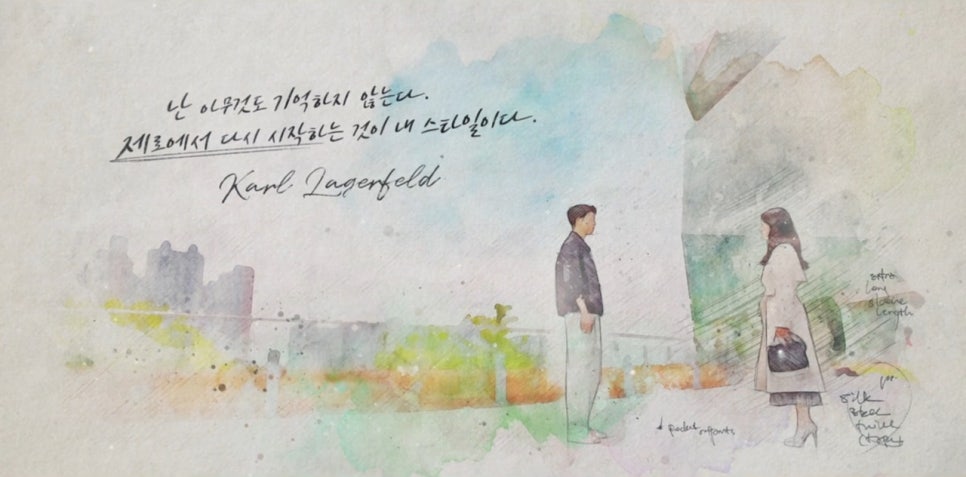 난 아무것도 기억하지 않는다.
제로에서 다시 시작하는 것이 내 스타일이다.
Karl Lagerfeld
extra
long
sleeve
length
silk